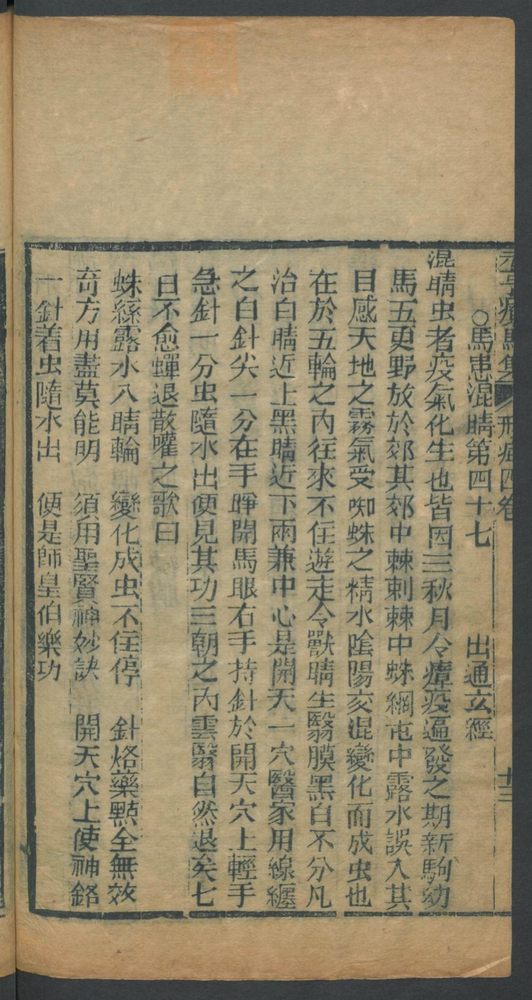 療馬集 形症四卷 十三
○馬患混睛第四十七 出通玄經
混睛虫者疫氣化生也皆因三秋月令瘴疫逼發之期新駒幼
馬五更野放於郊其郊中棘刺棘中蛛網屯中露水誤入其
目感天地之霧氣受蜘蛛之精水陰陽交混變化而成虫也
在於五輪之内往來不住遊走令獸睛生翳膜黑白不分凡
治白睛近上黑睛近下兩兼中心是開天一穴醫家用線纏
之白針尖一分在手睜開馬眼右手持針於開天穴上輕手
急針一分虫隨水出便見其功三朝之内雲翳自然退矣七
日不愈蟬退散嚾之歌曰
蛛絲露水入睛輪 變化成虫不住停 針烙藥㸃全無效
奇方用盡莫能明 須用聖賢神妙訣 開天穴上使神鉻
一針着虫隨水出 便是師皇伯樂功